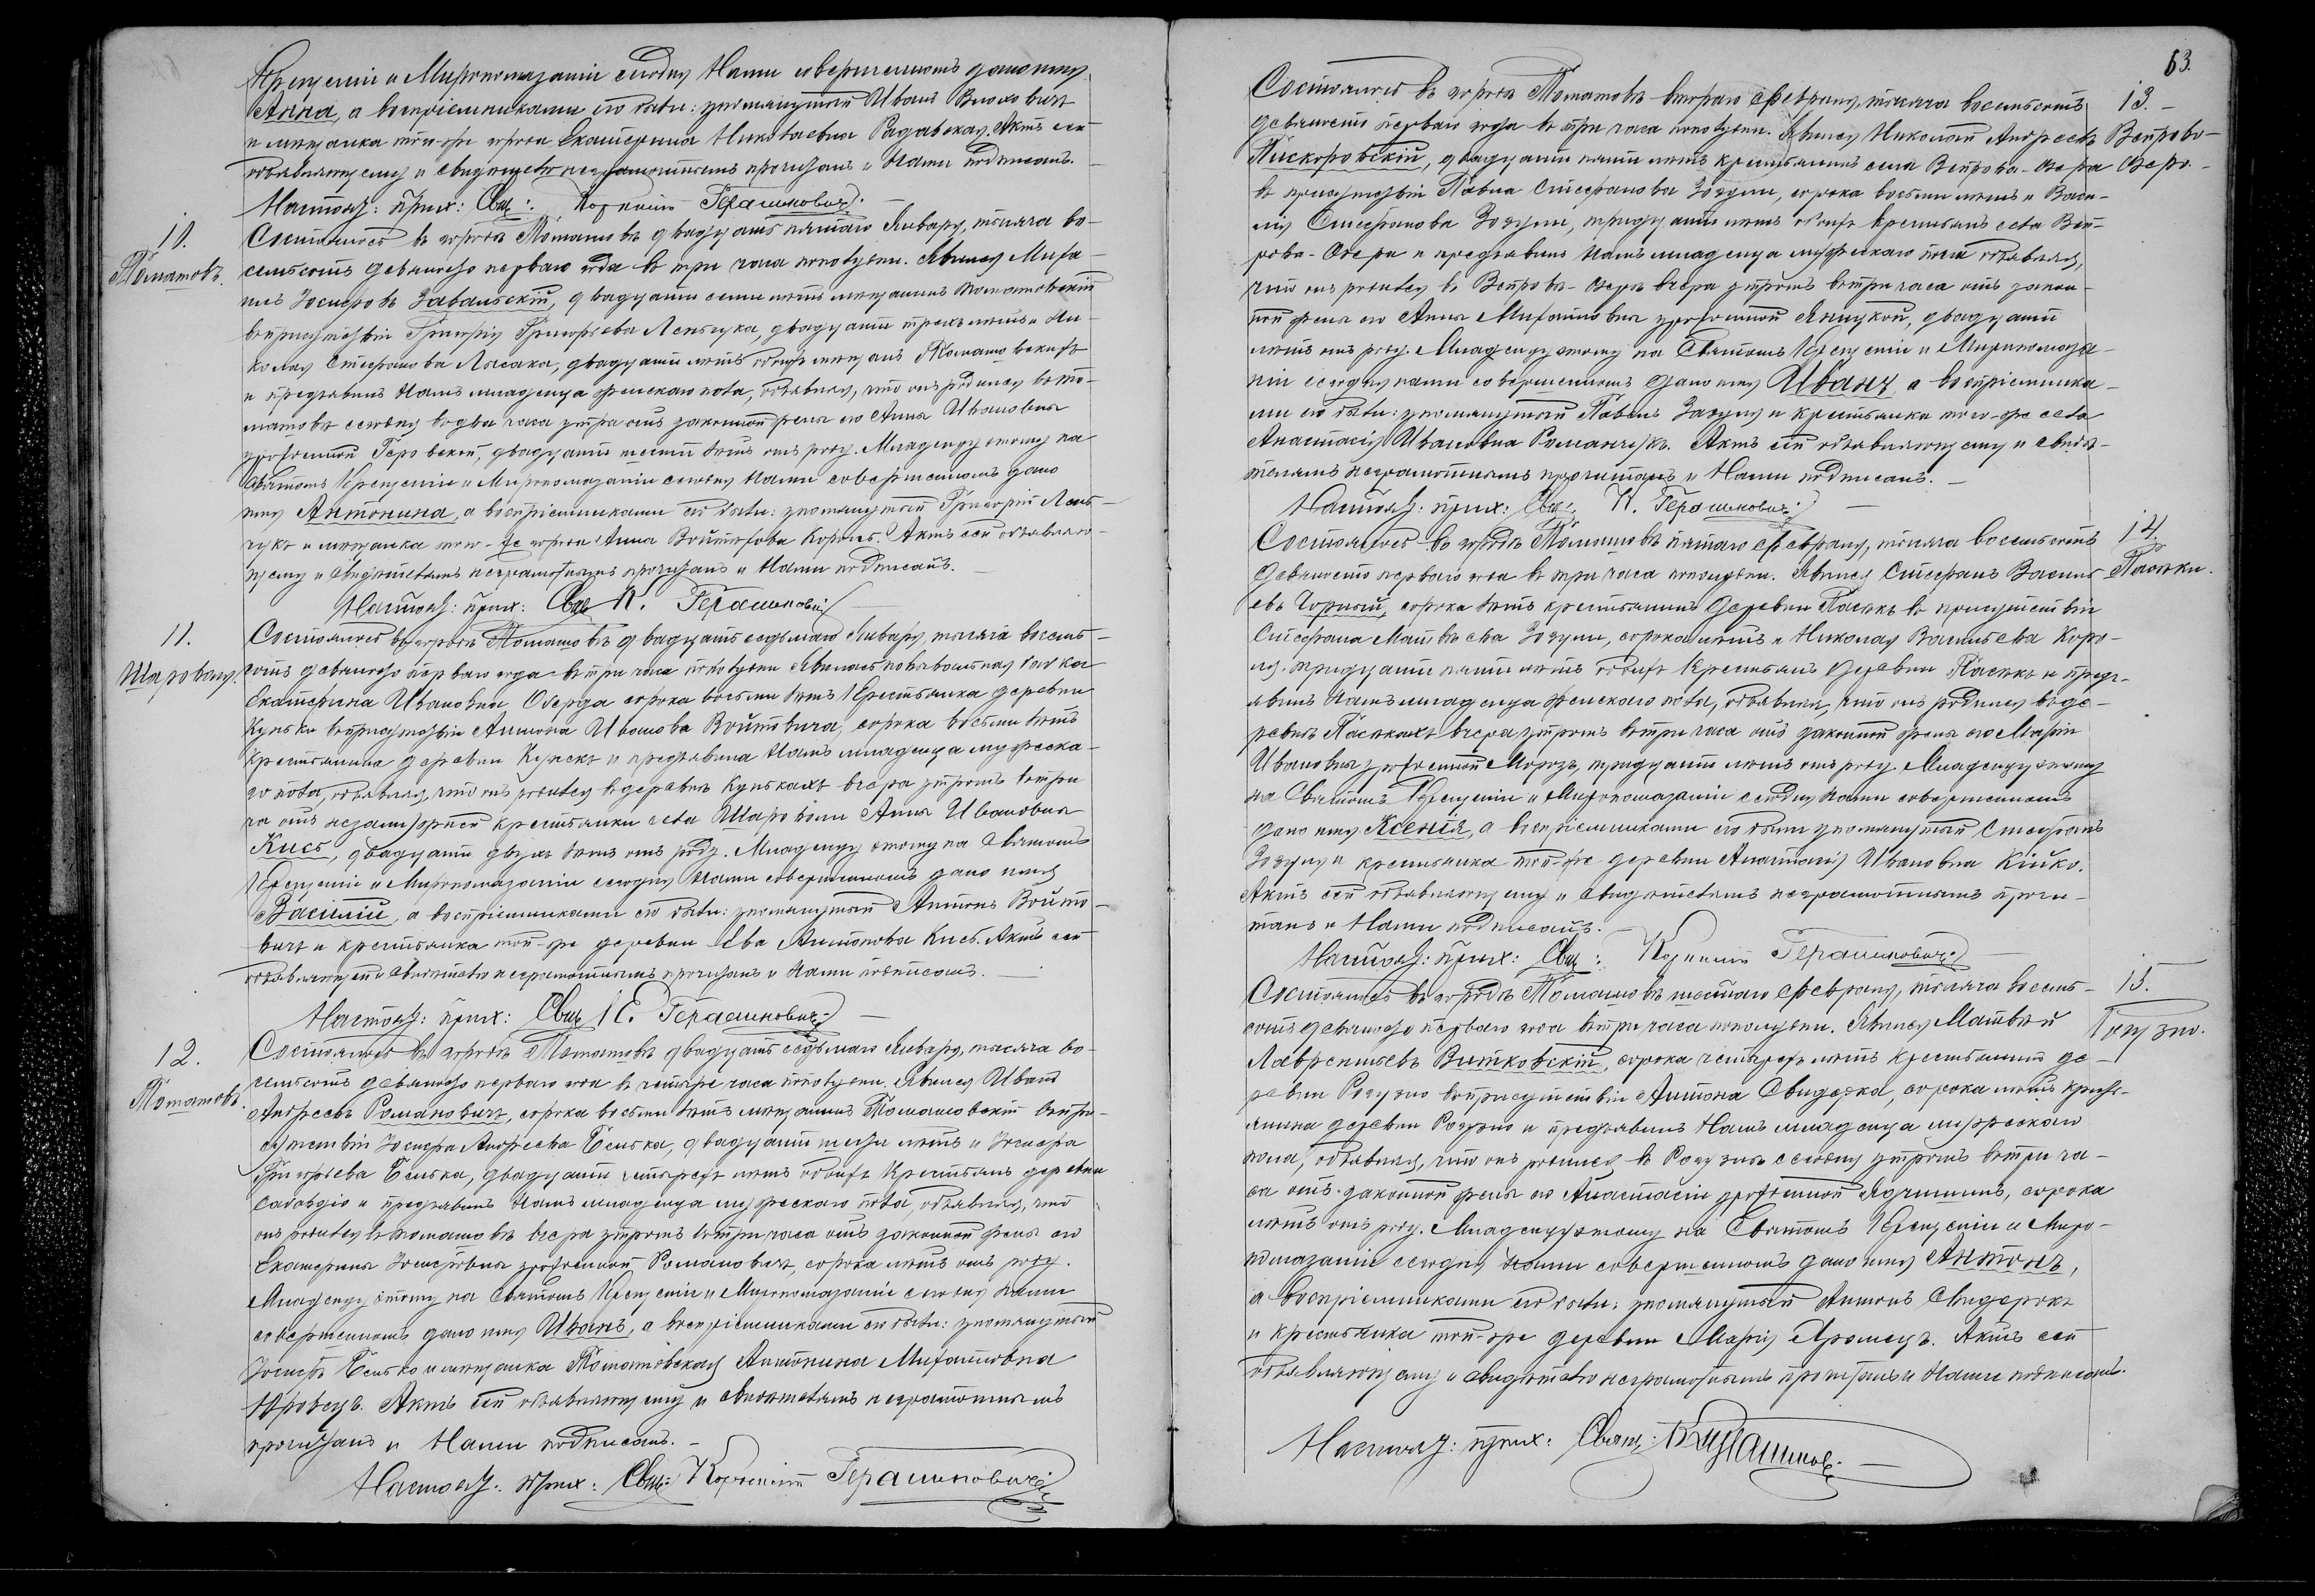 Крещеніи и Мѵропомазаніи сегодня Нами совершенномъ дано имя
Анна, а воспріемниками его были: упомянутый Иванъ
и мѣщанка того-же города Екатерина Николаевна Радавская. Актъ сей
объявляющему и свидѣтелю неграмотнымъ прочитанъ и Нами подписанъ. —
Настоят: прих: Свящ: Корнилій Герашиновичъ. —
10.
Томашовъ.
Состоялось въ городѣ Томашовѣ двадцать пятаго Января, тысяча во-
семьсотъ девяносто перваго года въ три часа пополудни. Явился Миха-
илъ Іосифовъ Завальскій, двадцати семи лѣтъ мѣщанинъ Томашовскій
въ присутствіи Григорія Григорьева Леньчука, двадцати трехъ лѣтъ и Ни-
колая Стефанова Лысака, двадцати лѣтъ обоихъ мѣщанъ Томашовскихъ
и предъявилъ Намъ младенца женскаго пола, объявляя, что онъ родился въ То-
машовѣ сегодня въ два часа утра отъ законной жены его Анны Ивановны
урожденной Геровской, двадцати шести лѣтъ отъ роду. Младенцу этому на
Святомъ Крещеніи и Мѵропомазаніи сегодня Нами совершенномъ дано
имя Антонина, а воспріемниками его были: упомянутый Григорій Лень-
чукъ и мѣщанка того-же города Анна Войтѣхова Король. Актъ сей объявляю-
щему и свидѣтелямъ неграмотнымъ прочитанъ и Нами подписанъ. —
Настоят: прих: Свящ К. Герашиновичъ
11.
Шароволя.
Состоялось въ городѣ Томашовѣ двадцать седьмаго Января, тысяча восемь-
сотъ девяносто перваго года въ три часа пополудни Явилась повивальная бабка
Екатерина Ивановна Оберда сорока восьми лѣтъ Крестьянка деревни
Куньки въ присутствіи Антона Иванова Войтовича, сорока восьми лѣтъ
Крестьянина деревни Кунекъ и предъявила Намъ младенца мужеска-
го пола, объявляя, что онъ родился въ деревнѣ Кунькахъ вчера утромъ въ три
ча отъ незамужней крестьянки села Шароволи Анны Ивановны
Кись, двадцати двухъ лѣтъ отъ роду. Младенцу этому на Святомъ
Крещеніи и Мѵропомазаніи сегодня Нами совершенномъ дано имя
Василій, а воспріемниками его были: упомянутый Антонъ Войто-
вичъ и крестьянка той-же деревни Ева Антонова Кись. Актъ сей
объявляющей и свидѣтелю неграмотнымъ прочитанъ и Нами подписанъ. —
Настоят: прих: Свящ К. Герашиновичъ —
12.
Томашовъ.
Состоялось въ городѣ Томашовѣ двадцать седьмаго Января, тысяча во-
семьсотъ девяносто перваго года въ четыре часа пополудни. Явился Иванъ
Андреевъ Романовичъ, сорока восьми лѣтъ мѣщанинъ Томашовскій въ при-
сутствіи Іосифа Андреева Белька, двадцати шести лѣтъ и Іосифа
Григорьева Белька, двадцати четырехъ лѣтъ обоихъ Крестьянъ деревни
и предъявилъ Намъ младенца мужескаго пола, объявляя, что
онъ родился въ Томашовѣ вчера утромъ въ три часа отъ законной жены его
Екатерины Іосифовны урожденной Романовичъ, сорока лѣтъ отъ роду.
Младенцу этому на Святомъ Крещеніи и Мѵропомазаніи сегодня Нами
совершенномъ дано имя Иванъ, а воспріемниками его были: упомянутый
Іосифъ Белько и мѣщанка Томашовская Антонина Михайловна
Актъ сей объявляющему и свидѣтелямъ неграмотнымъ
прочитанъ и Нами подписанъ. —
Настоят: прих: Свящ: Корнилій Герашиновичъ
63.
13. —
Вепрово-
Озеро. —
Состоялось въ городѣ Томашовѣ втораго Февраля, тысяча восемьсотъ
девяносто перваго года въ три часа пополудни. Явился Николай Андреевъ
Пискоровскій, двадцати пяти лѣтъ крестьянинъ села Вепрова-Озера
въ присутствіи Павла Стефанова Зозули, сорока восьми лѣтъ и Васи-
лія Стефанова Зозули, тридцати лѣтъ обоихъ крестьянъ села Веп-
рова-Озера и предъявилъ Намъ младенца мужескаго пола объявляя,
что онъ родился въ Вепровѣ-Озерѣ вчера утромъ въ три часа отъ закон-
ной жены его Анны Михайловны урожденной двадцати
лѣтъ отъ роду. Младенцу этому на Святомъ Крещеніи и Мѵропомаза-
ніи сегодня нами совершенномъ дано имя Иванъ, а воспріемника-
ми его были: упомянутый Павелъ Зозуля и крестьянка того-же села
Анастасія Ивановна Романчукъ. Актъ сей объявляющему и свидѣ-
телямъ неграмотнымъ прочитанъ и Нами подписанъ. —
Настоят: прих: Свящ: К. Герашиновичъ —
14.
Пасѣки.
Состоялось въ городѣ Томашовѣ пятаго Февраля, тысяча восемьсотъ
девяносто перваго года въ три часа пополудни. Явился Стефанъ Василь-
евъ Чорный, сорока лѣтъ крестьянинъ деревни Пасѣкъ въ присутствіи
Стефана Матвѣева Зозули, сорока лѣтъ и Николая Васильева Коро-
ля, тридцати пяти лѣтъ обоихъ Крестьянъ деревни Пасѣкъ и предъ-
явилъ Намъ младенца женскаго пола, объявляя, что онъ родился въ де-
ревнѣ Пасѣкахъ вчера утромъ въ три часа отъ законной жены его Маріи
Ивановны урожденной Морозъ, тридцати лѣтъ отъ роду. Младенцу этому
на Святомъ Крещеніи и Мѵропомазаніи сегодня нами совершенномъ
дано имя Ксенія, а воспріемниками его были упомянутый Стефанъ
Зозуля и крестьянка той-же деревни Анастасія Ивановна Кійко.
Актъ сей объявляющему и свидѣтелямъ неграмотнымъ прочи-
танъ и Нами подписанъ. —
Настоят: прих: Свящ: Корнилій Герашиновичъ
15.
Рогузно.
Состоялось въ городѣ Томашовѣ шестаго Февраля, тысяча восемь-
сотъ девяносто перваго года въ три часа пополудни. Явился Матвѣй
Лаврентьевъ Витковскій, сорока четырехъ лѣтъ крестьянинъ де-
ревни Рогузно въ присутствіи Антона Свидерка, сорока лѣтъ кресть-
янина деревни Рогузно и предъявилъ Намъ младенца мужескаго
пола, объявляя, что онъ родился въ Рогузнѣ сегодня утромъ въ три ча-
са отъ законной жены его Анастасіи урожденной сорока
лѣтъ отъ роду. Младенцу этому на Святомъ Крещеніи и Мѵро-
помазаніи сегодня нами совершенномъ дано имя Антонъ,
а воспріемниками его были: упомянутый Антонъ Свидерокъ
и крестьянка той-же деревни Марія Яромецъ. Актъ сей
объявляющему и свидѣтелю неграмотнымъ прочитанъ и Нами подписанъ.
Настоят: прих: Свящ: